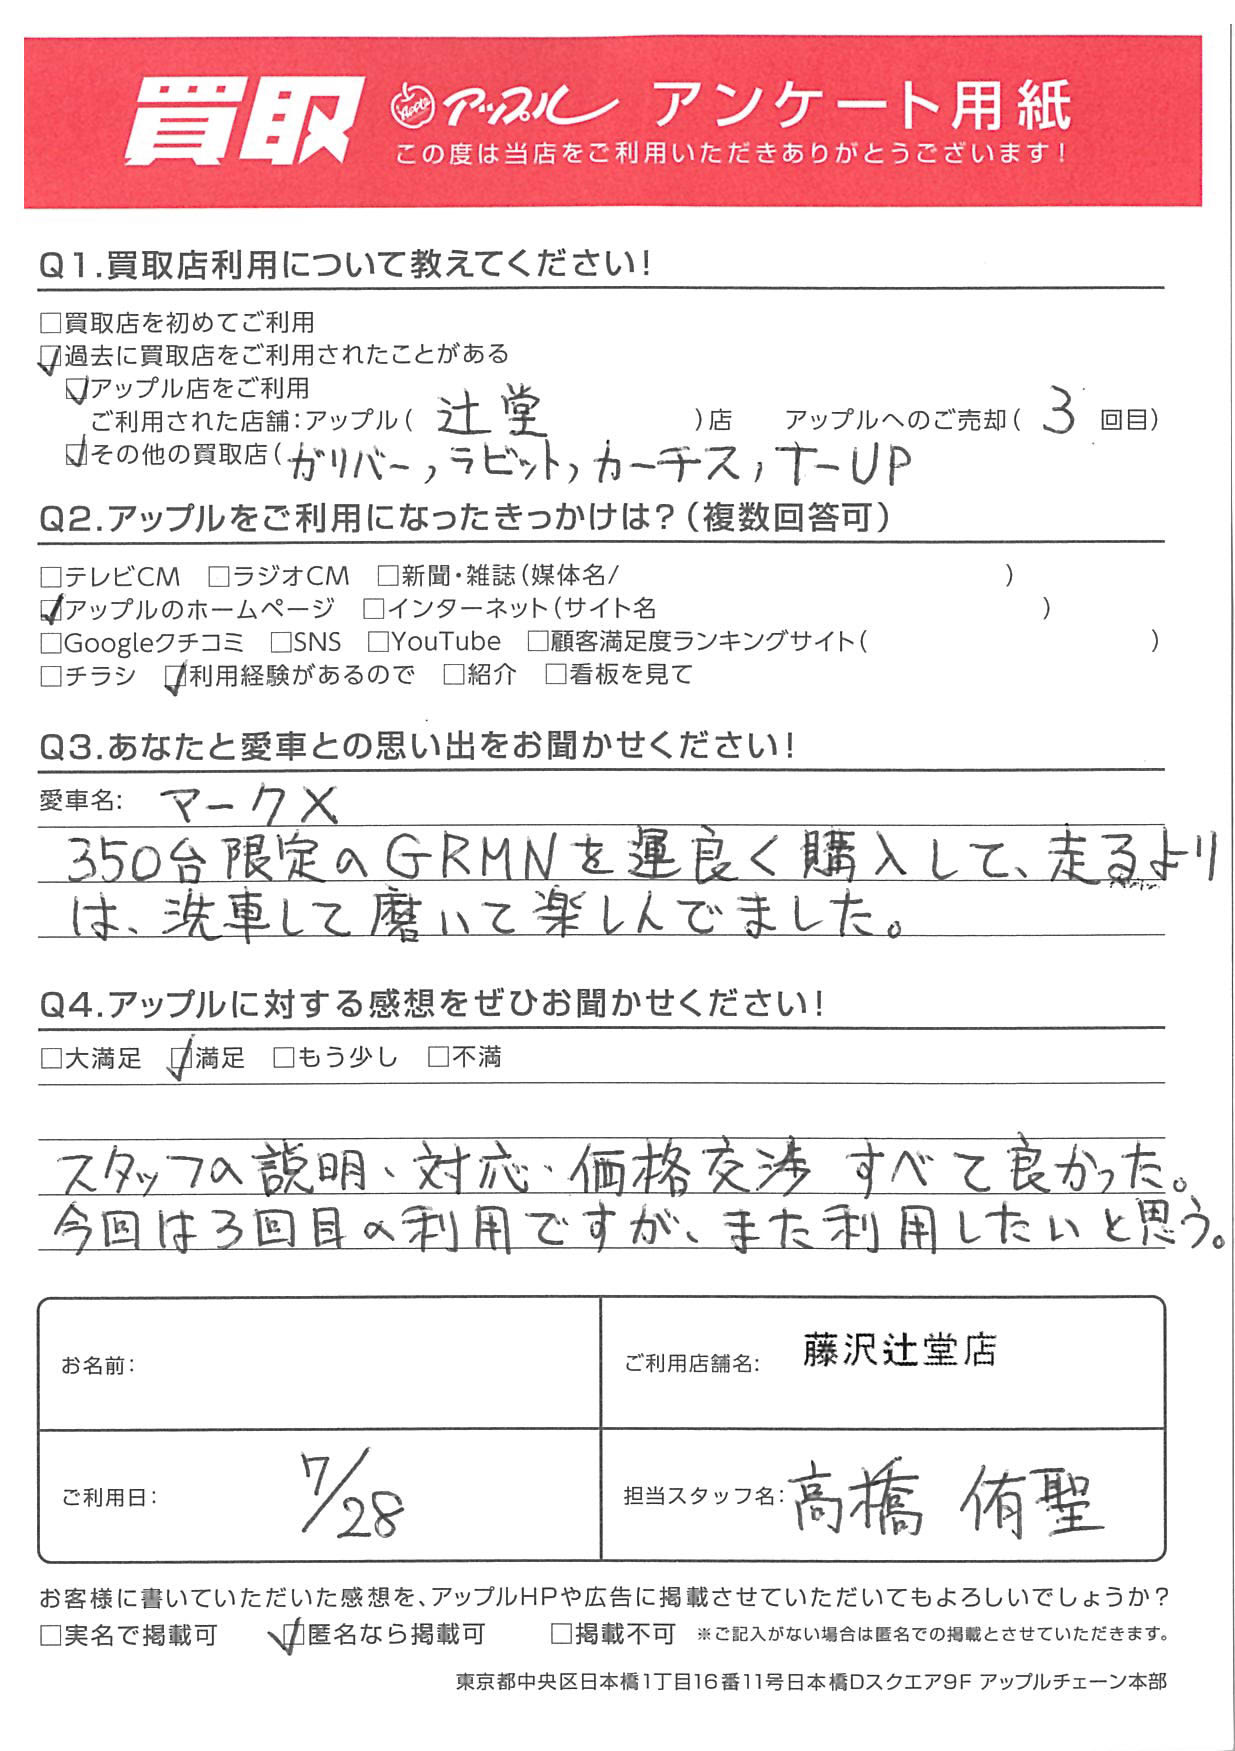 買取 Apple アップル アンケート用紙
この度は当店をご利用いただきありがとうございます！
Q1.買取店利用について教えてください！
□買取店を初めてご利用
☑過去に買取店をご利用されたことがある
☑アップル店をご利用
ご利用された店舗：アップル（ 辻堂 ）店 アップルへのご売却（ 3 回目）
☑その他の買取店（ガリバー，ラビット，カーチス，T-UP
Q2.アップルをご利用になったきっかけは？（複数回答可）
□テレビCM □ラジオCM □新聞・雑誌（媒体名/ ）
☑アップルのホームページ □インターネット（サイト名 ）
□Googleクチコミ □SNS □YouTube □顧客満足度ランキングサイト（ ）
□チラシ ☑利用経験があるので □紹介 □看板を見て
Q3.あなたと愛車との思い出をお聞かせください！
愛車名： マークX
350台限定のGRMNを運良く購入して、走るより
は、洗車して磨いて楽しんでました。
Q4.アップルに対する感想をぜひお聞かせください！
□大満足 ☑満足 □もう少し □不満
スタッフの説明、対応、価格交渉 すべて良かった。
今回は3回目の利用ですが、また利用したいと思う。
お名前： ご利用店舗名： 藤沢辻堂店
ご利用日： 7/28 担当スタッフ名： 高橋 侑聖
お客様に書いていただいた感想を、アップルHPや広告に掲載させていただいてもよろしいでしょうか？
□実名で掲載可 ☑匿名なら掲載可 □掲載不可 ※ご記入がない場合は匿名での掲載とさせていただきます。
東京都中央区日本橋1丁目16番11号日本橋Dスクエア9F アップルチェーン本部